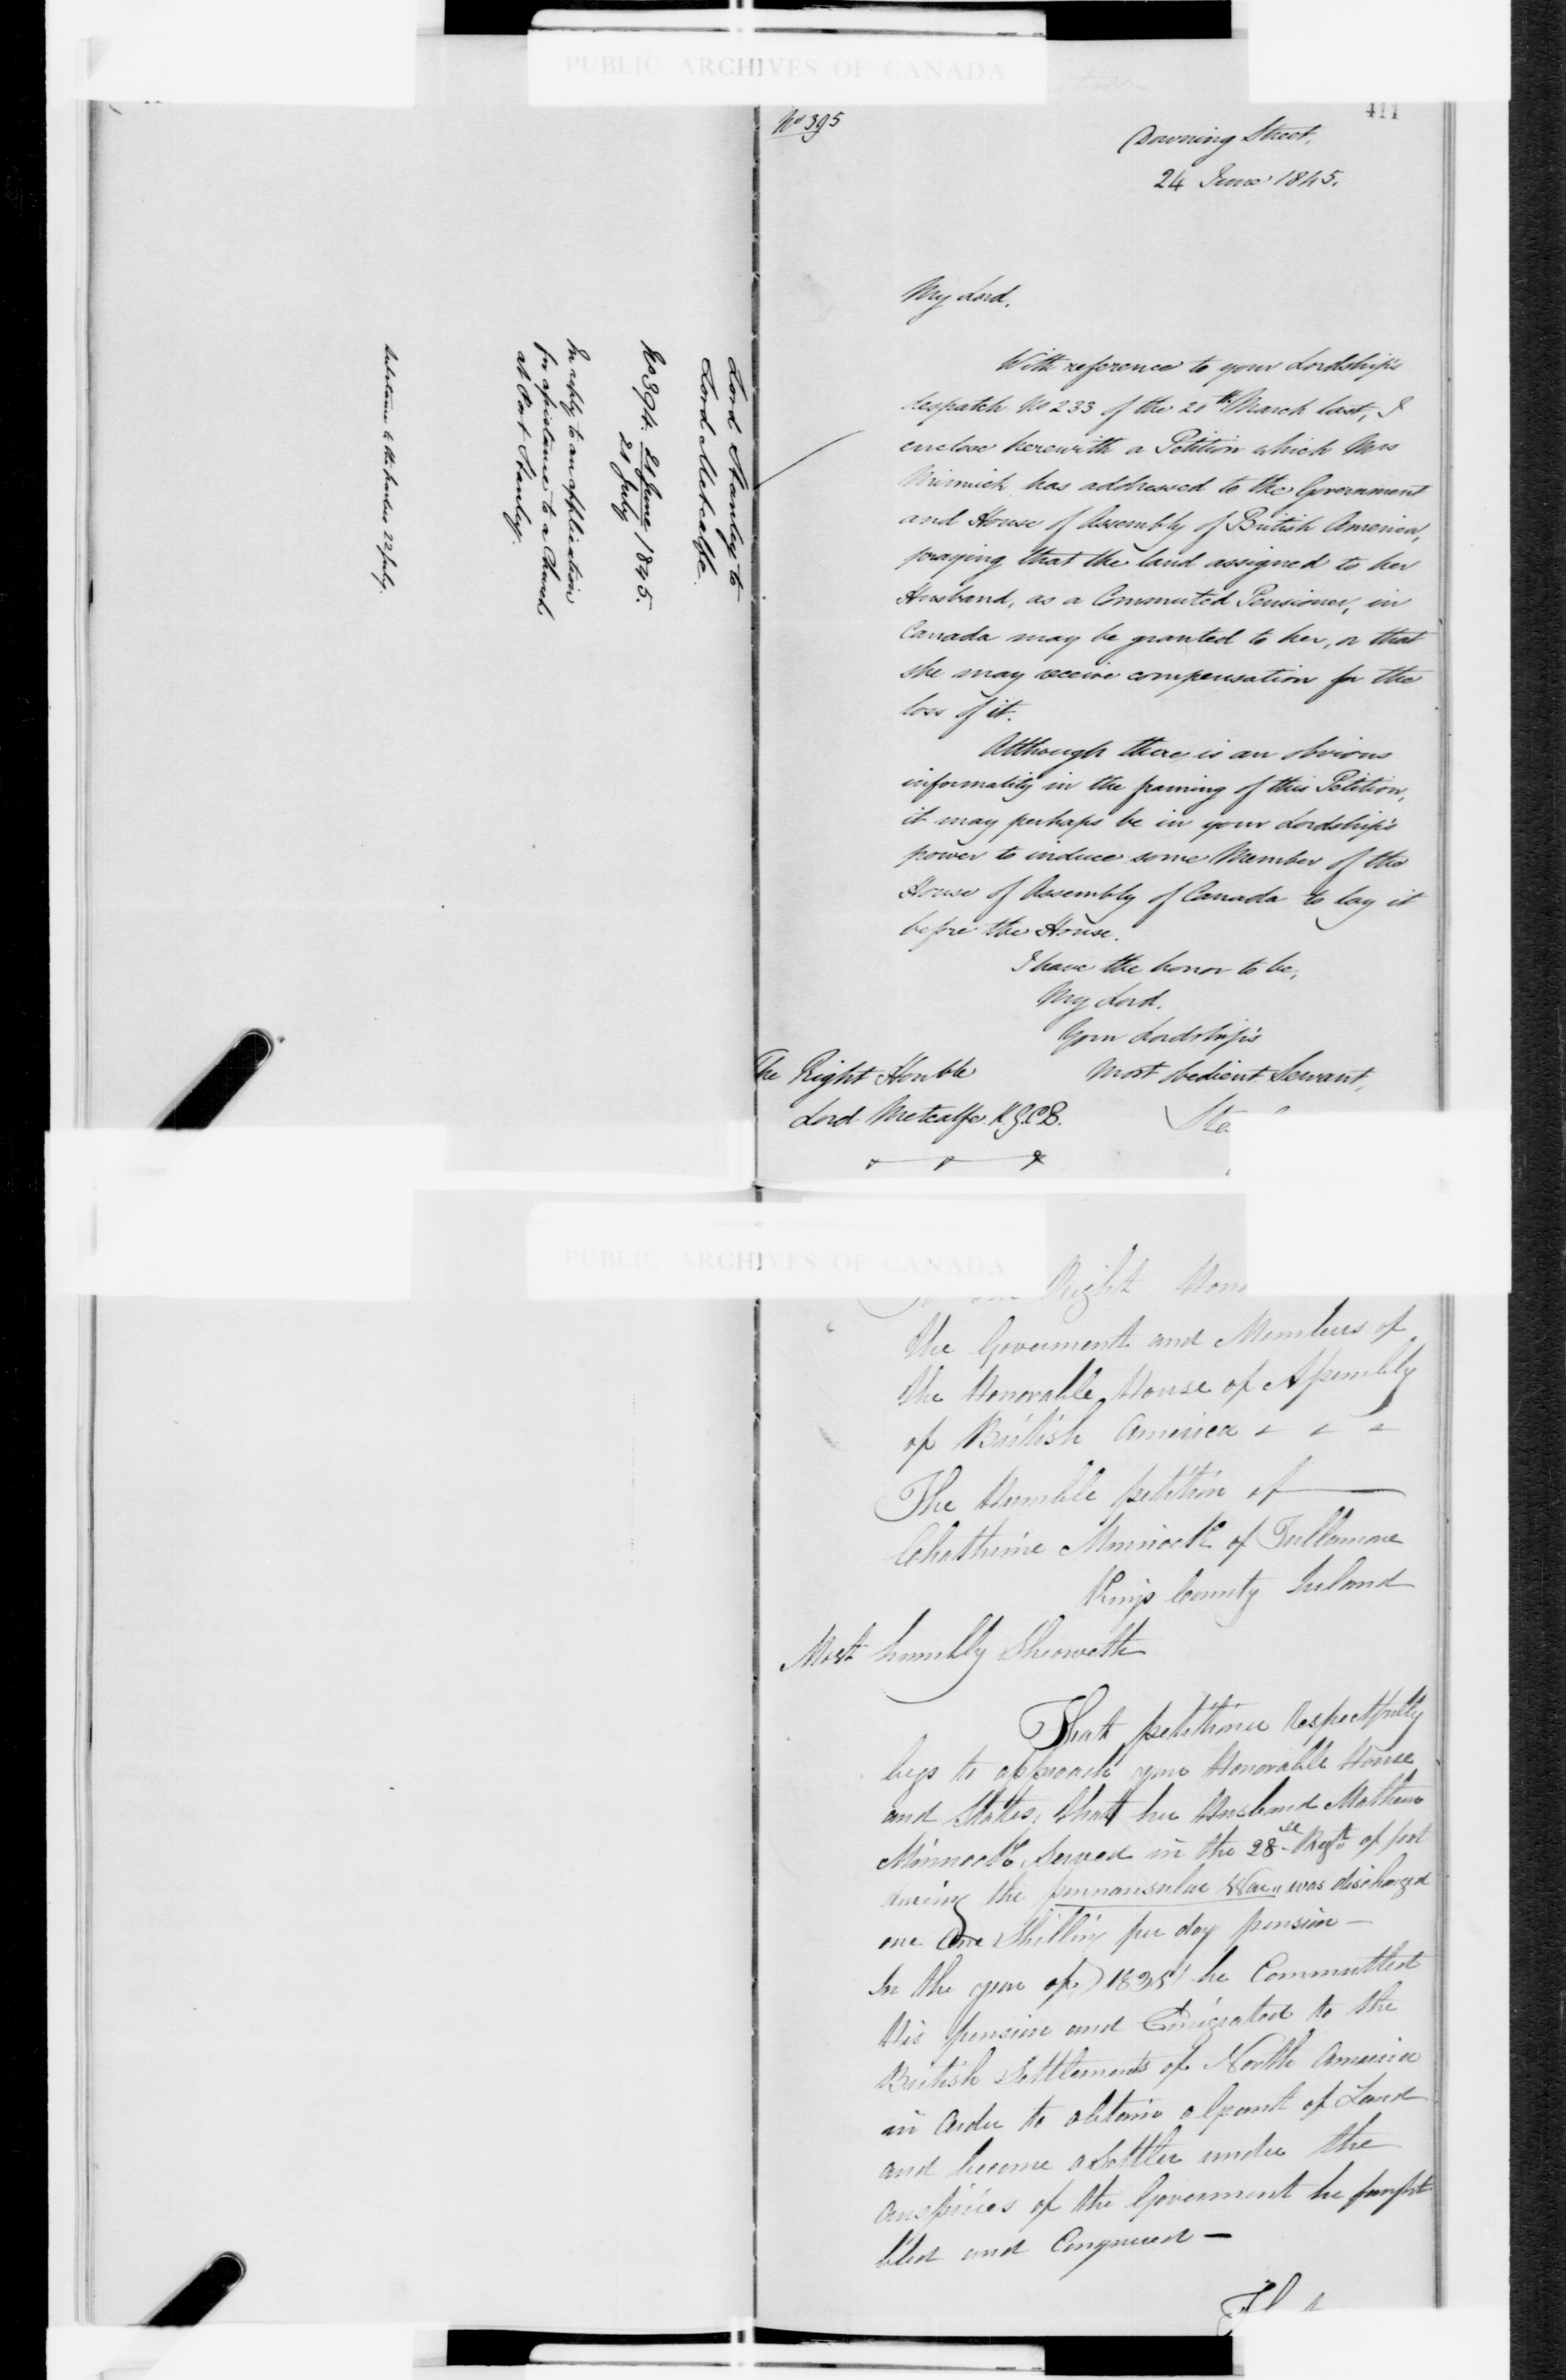 PUBLIC ARCHIVES OF CANADA
411
No 395
Downing Street,
24 June 1845.
My Lord,
With reference to your Lordship's
despatch No 233 of the 20th March last, I
enclose herewith a Petition which Mrs
Minnick has addressed to the Government
and House of Assembly of British America,
praying that the land assigned to her
Husband, as a Commuted Pensioner, in
Canada may be granted to her, or that
she may receive compensation for the
loss of it.
Although there is an obvious
informality in the framing of this Petition,
it may perhaps be in your Lordship's
power to induce some Member of the
House of Assembly of Canada to lay it
before the House.
I have the honor to be,
My Lord,
Your Lordship's
Most obedient Servant,
The Right Honble
Lord Metcalfe. K.G.C.B.
Sta
Lord Stanley to
Lord Metcalfe.
No 394. 21 June / 1845.
21 July
In reply to an application
for assistance to a Church
at Port Stanley.
22 July.
PUBLIC ARCHIVES OF CANADA
Right Hon
the Goverment and Members of
the Honorable House of Assembly
of British America
The Humble petition of
Chathrine Minnock of Tullamore
Kings County Ireland
Most humbly Sheoweth
That petitioner Respectfully
begs to approach your Honorable House
and States, that her Husband Mathew
Minnock, Served in the 28th Regt of foot
during the pennansular War was discharged
one One Shilling per day pension —
In the year of 1835 he Commutted
His pension and Emigrated to the
British Settlements of North America
in Order to obtain a Grant of Land
and become a Settler under the
auspices of the Goverment he fought
bled and Conquered —